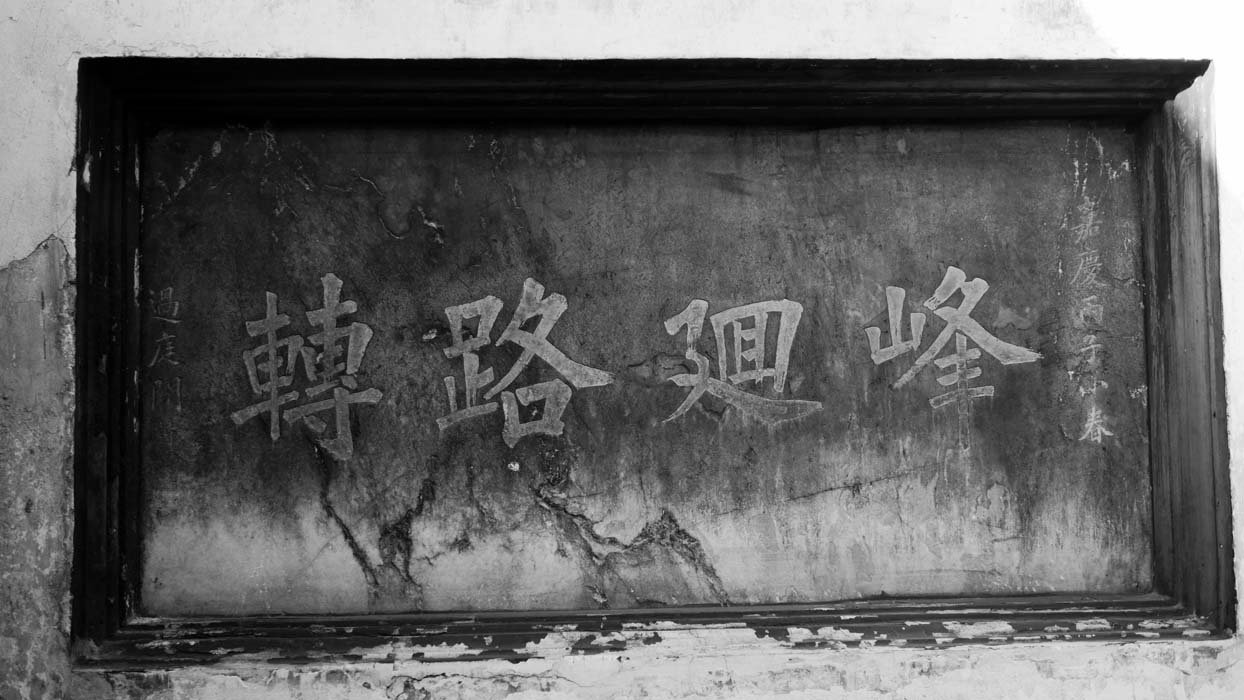 嘉慶丙子小春
峰廻路轉
過庭門